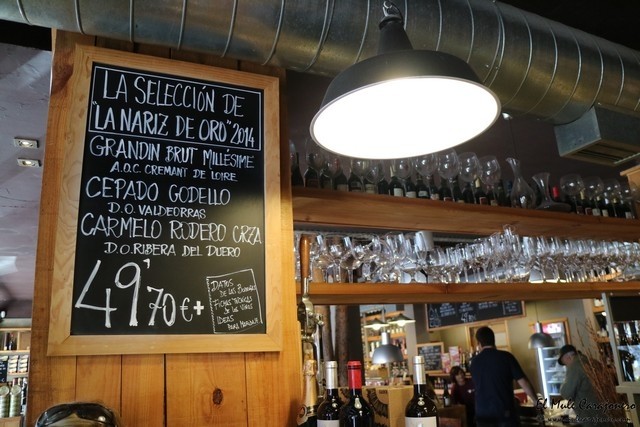 LA SELECCIÓN DE
"LA NARIZ DE ORO" 2014
GRANDIN BRUT MILLÉSIME
A.O.C. CREMANT DE LOIRE
CEPADO GODELLO
D.O. VALDEORRAS
CARMELO RODERO CRZA
D.O. RIBERA DEL DUERO
49'70€+
DATOS
DE LAS BODEGAS
FICHAS TÉCNICAS
DE LOS VINOS
IDEAS
PARA MARIDAR
El Mule Carajonero